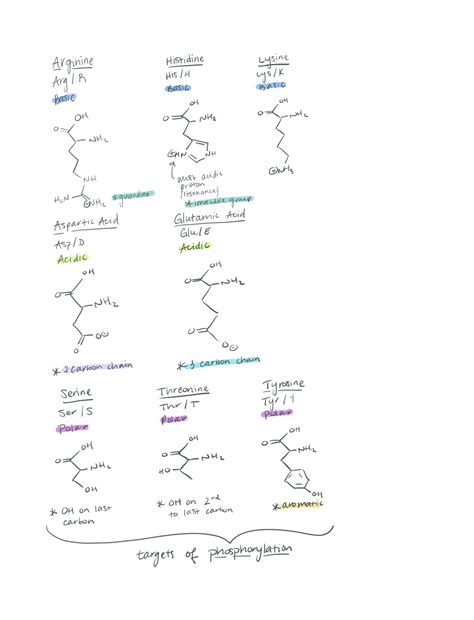 Arginine
Arg/R
Basic
OH
O
NH₂
NH
H₂N
⊕NH₂
*guanidino
Histidine
His/H
Basic
OH
O
NH₂
⊕HN
NH
most acidic
proton
(resonance)
*imidazole group
Lysine
Lys/K
Basic
OH
O
NH₂
⊕NH₃
Aspartic Acid
Asp/D
Acidic
OH
O
NH₂
O
O⊖
* 2 carbon chain
Glutamic Acid
Glu/E
Acidic
OH
O
NH₂
O
O
⊖
* 3 carbon chain
Serine
Ser/S
Polar
OH
O
NH₂
OH
* OH on last
carbon
Threonine
Thr/T
Polar
OH
O
NH₂
HO
* OH on 2nd
to last carbon
Tyrosine
Tyr/Y
Polar
OH
O
NH₂
OH
*aromatic
targets of phosphorylation